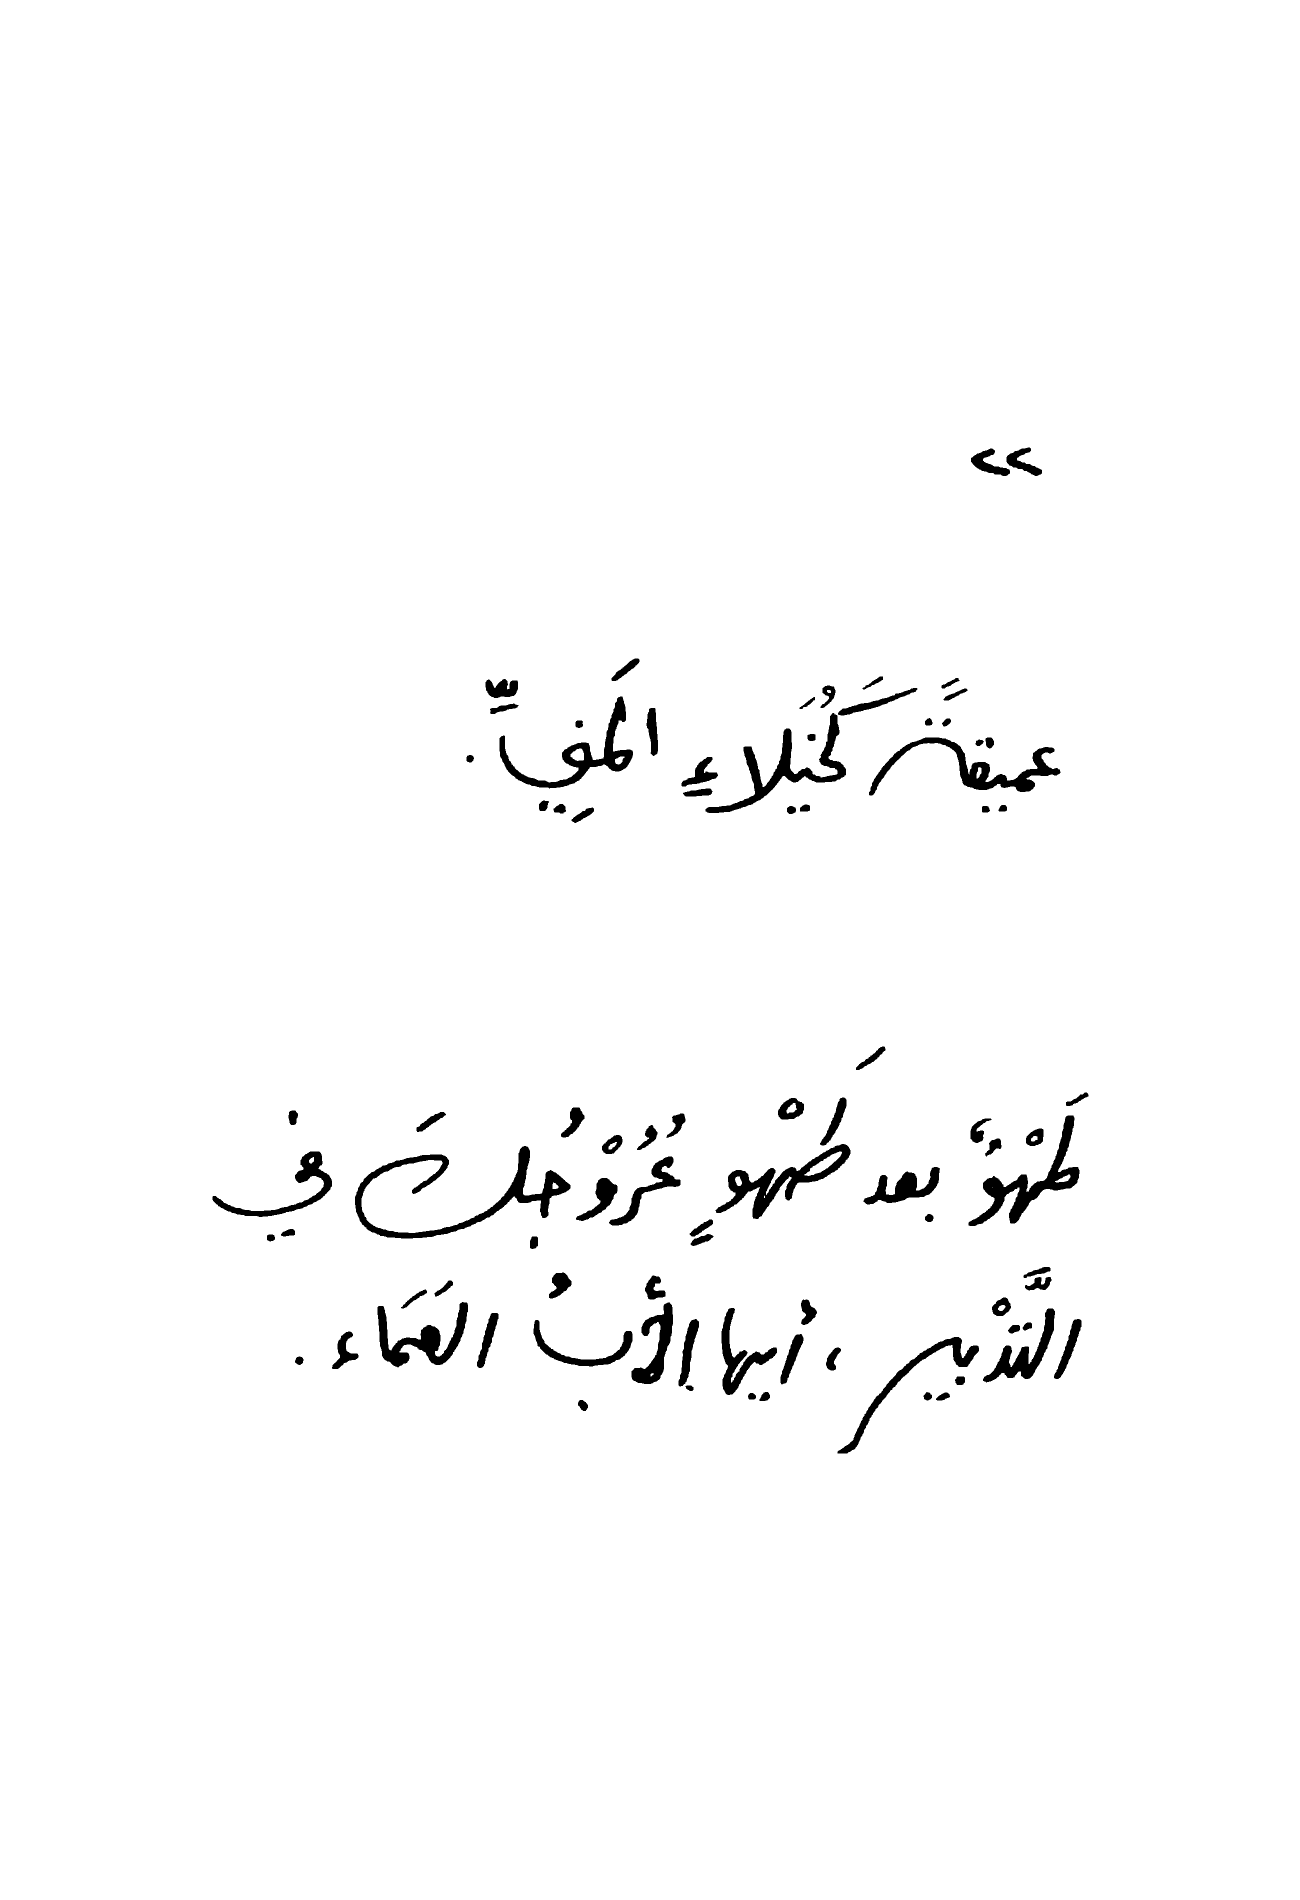 >>
عميقةً كَخُيَلاءِ المَنِيِّ.
طَهْوٌ بعد طَهْوٍ عُرُوْجُكَ في
التَّدْبير، أيها الأَبُ العَمَاء.